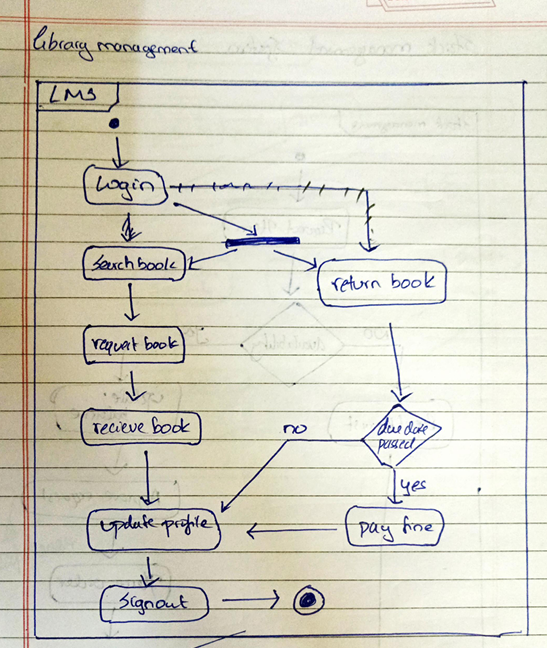 Library management
LMS
Login
search book
return book
request book
recieve book
due date
passed
no
yes
update profile
pay fine
signout